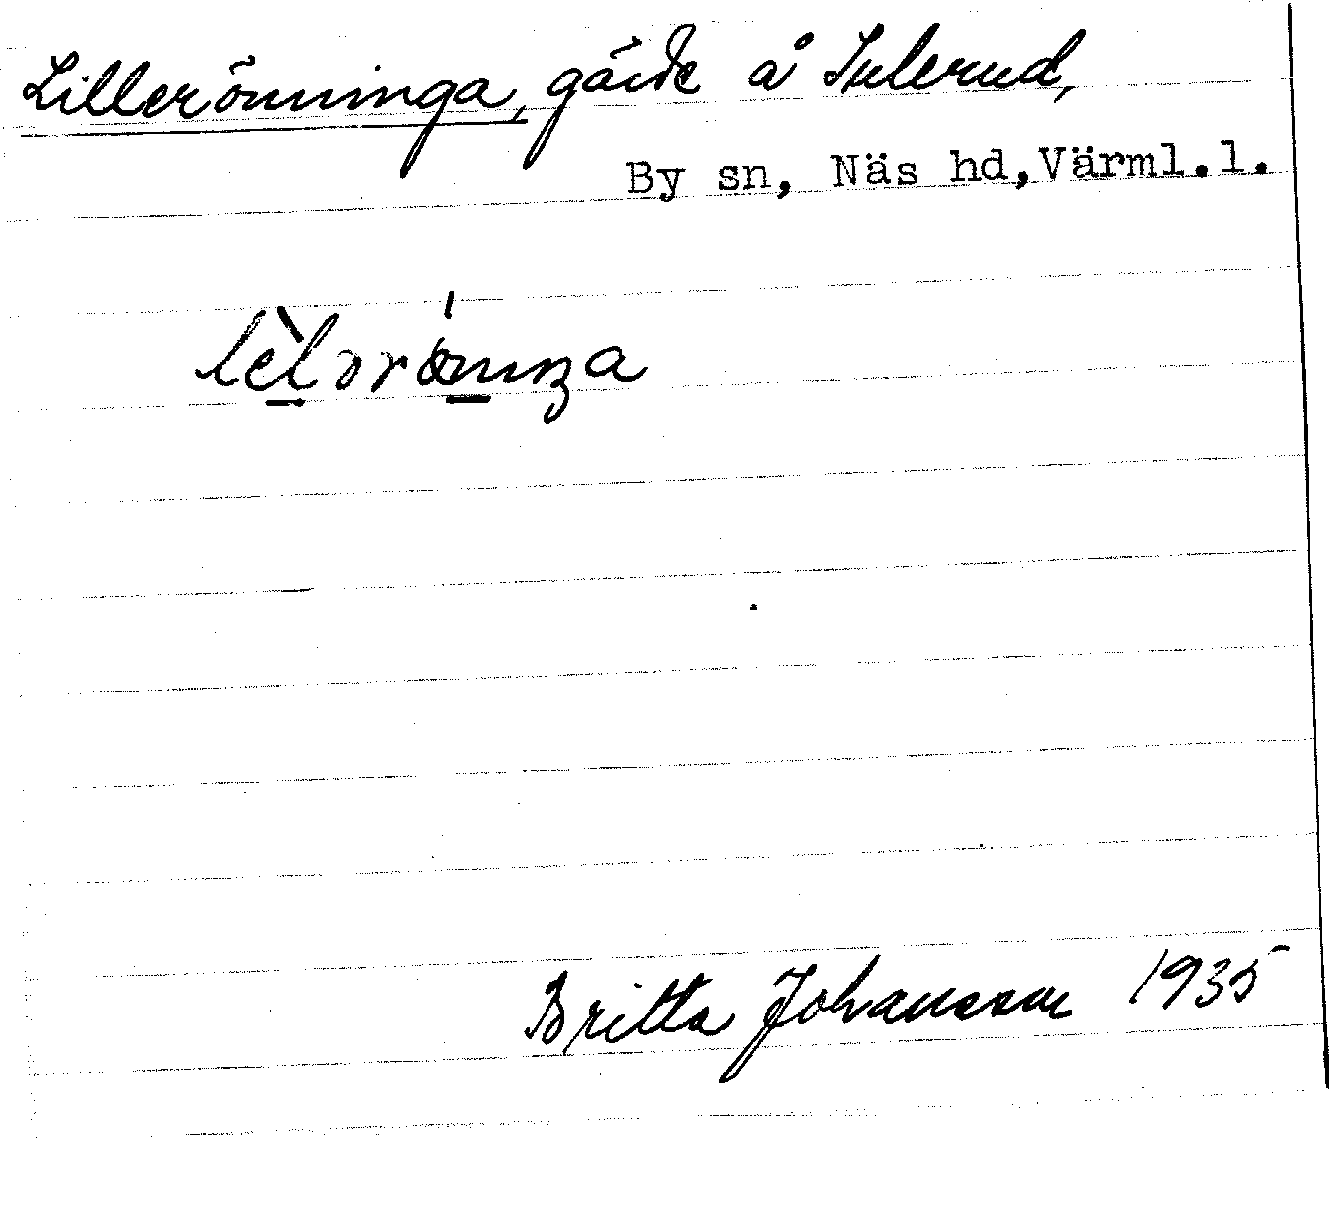 Lillerönninga, gärde å Julerud,
By sn, Näs hd, Värml.l.
Britta Johansson 1935